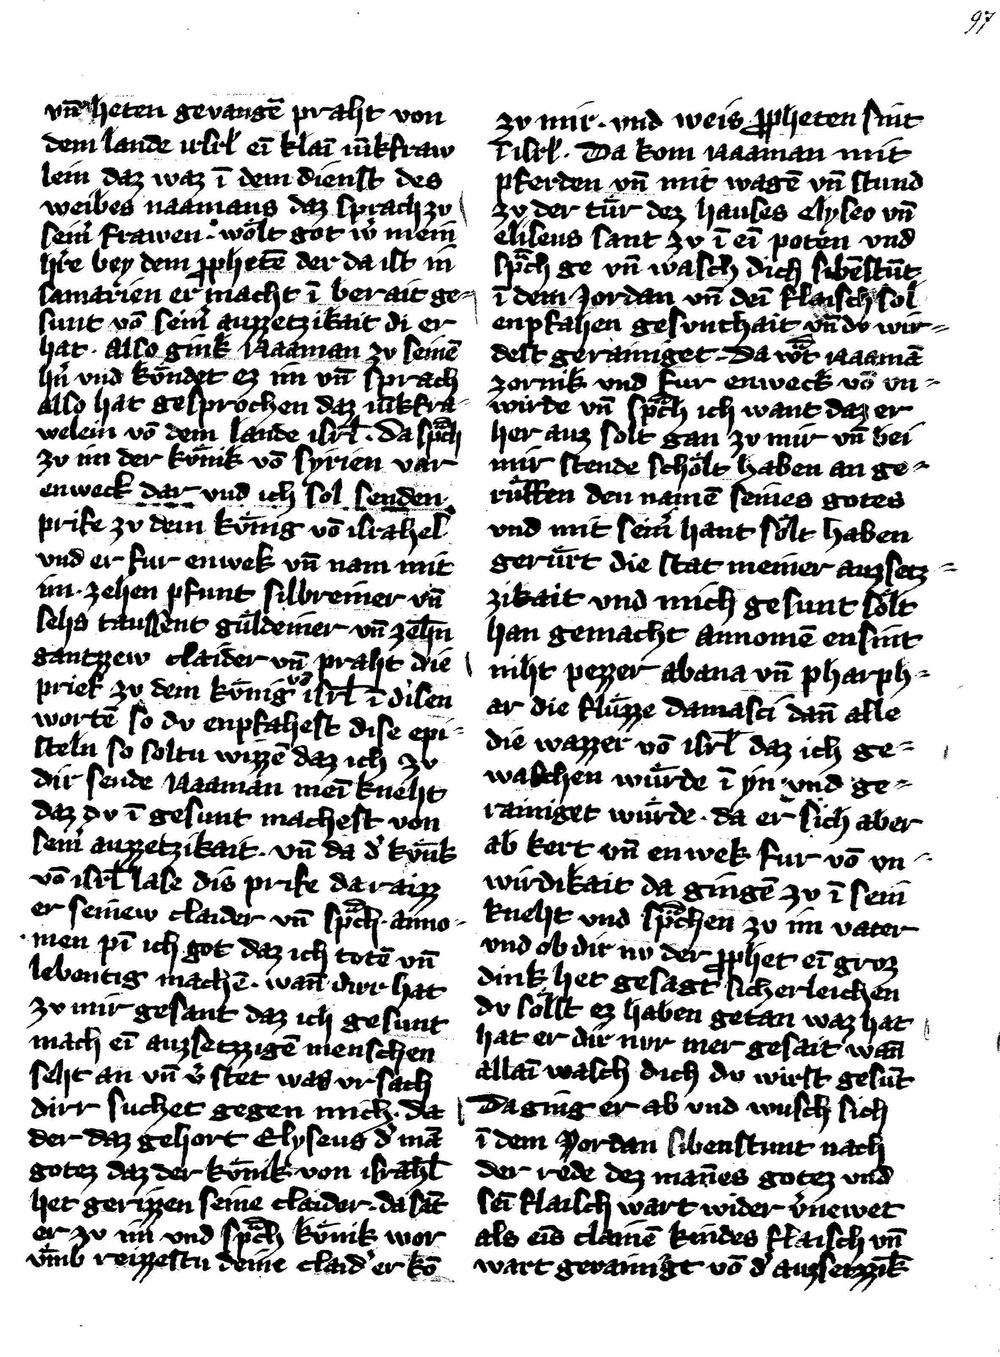 97
vn̄ heten gevangē praht von
dem lande isrl̄ eī klaī iūkfraw
lein daz waz ī dem dienst des
weibes naamans daz sprach zv
seinr̉ frawen · wölt got wr̉ mein
hr̉re bey dem ꝓphetē der da ist in
samarien er macht ī berait ge⸗
sunt vō seinr̉ auzzetzikait di er
hat · Also gink Naaman zv seinē
hr̉n vnd kv̈ndet ez im vn̄ sprach
also hat gesprochen daz iūkfra⸗
welein vō dem lande isrl̄ · Da sp̄ch
zv im der kv̈nik vō syrien var
enweck dar vnd ich sol senden
prife zv dem kv̈nig vō israhel
vnd er fur enwek vn̄ nam mit
im · zehen pfunt silbreiner vn̄
sehs taussent gu̇ldeiner vn̄ zehn̄
gantzzew claider vn̄ praht die
prief zv dem kv̈nig vō isrl̄ ī disen
wortē so dv enpfahest dise epi⸗
steln so soltu wizzē daz ich zv
dir sende Naaman meī kneht
daz dv ī gesunt machest von
seinr̉ auzzetzikait · vn̄ da dr̉ kv̈nk
vō isrl̄ lase dis prife da raizz
er seinew claider vn̄ sp̄ch · anno⸗
men pī ich got daz ich totē vn̄
lebentig machē · wan̄ dirr hat
zv mir gesant daz ich gesunt
mach eī auzsetzzigē menschen
seht an vn̄ vr̉stet was vrsach
dirr suchet gegen mich · da
der daz gehort Elyseus dr̉ mā
gotez daz der kv̈nik von israhl̄
het gerizzen seine claider · da sāt
er zv im vnd sp̄ch kv̈nik wor
vm̈b reizzestu deine claidr̉ er kō
zv mir · vnd weis ꝓpheten sint
ī isrl̄ · Da kom Naaman mit
pferden vn̄ mit wagē vn̄ stund
zv der tu̇r dez hauses elyseo vn̄
eliseus sant zv ī eī poten vnd
sp̄ch ge vn̄ wasch dich sibēstūt
ī dem Jordan vn̄ deī flaisch sol
enpfahen gesunthait vn̄ dv wir⸗
dest gerainiget · Da wa͛t Naamā
zornik vnd fur enweck vō vn⸗
wirde vn̄ sp̄ch ich want daz er
her auz solt gan zv mir vn̄ bei
mir stende schölt haben an ge⸗
ru̇ffen den namē seines gotes
vnd mit seinr̉ hant sölt haben
geru̇rt die stat meiner auzsetz⸗
zikait vnd mich gesunt sölt
han gemacht annomē ensint
niht pezzer abana vn̄ pharph⸗
ar die flu̇zze damasci dan̄ alle
die wazzer vō isrl̄ daz ich ge⸗
waschen wu̇rde ī yn vnd ge⸗
rainiget wu̇rde · da er sich aber
ab kert vn̄ enwek fur vō vn⸗
wirdikait da gingē zv ī sein
kneht vnd sp̄chen zv im vater
vnd ob dir nv der ꝓphet eī groz
dink het gesagt sicherleichen
dv söllst ez haben getan waz hat
hat er dir nvr mer gesait wan̄
allaī wasch dich dv wirst gesūt
Da ging er ab vnd wusch sich
ī dem Yordan sibenstunt nach
der rede dez man̄es gotez vnd
seī flaisch wart wider vr̉newet
als eis clainē kindes flaisch vn̄
wart gerainigt vō dr̉ auzsetzzik̄